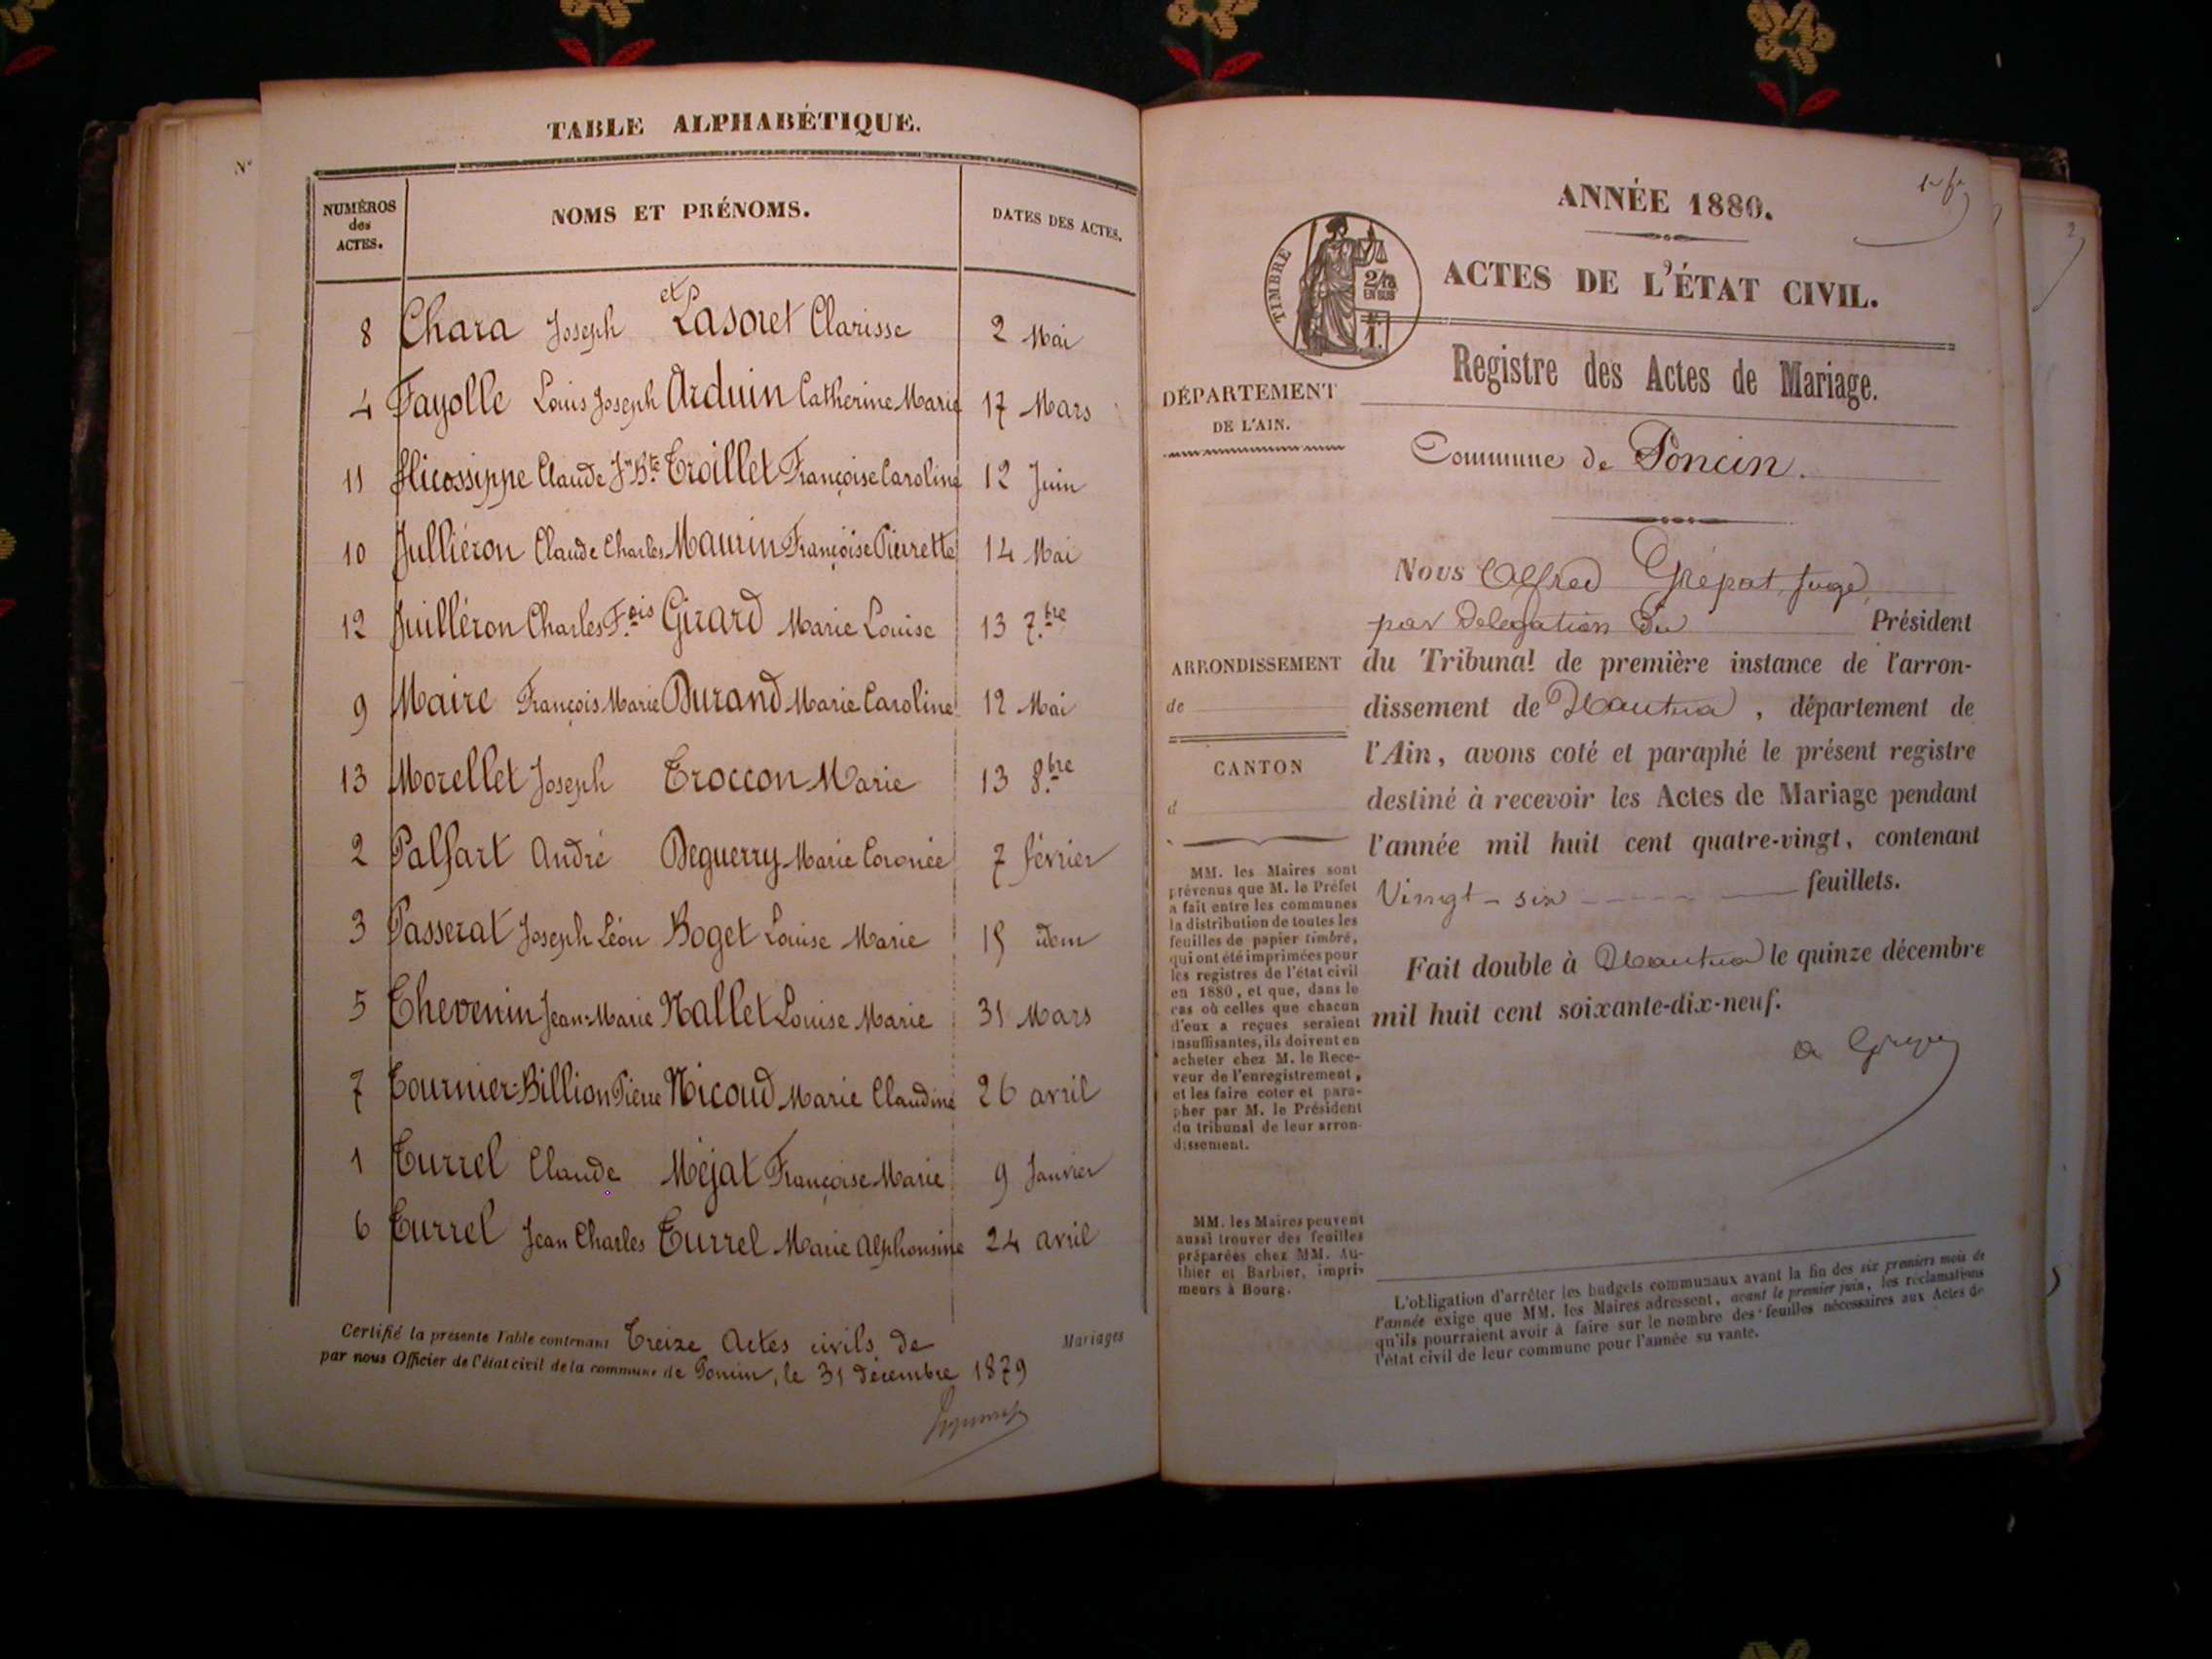 TABLE ALPHABÉTIQUE.
NUMÉROS des ACTES.
NOMS ET PRÉNOMS.
DATES DES ACTES.
8 Chara Joseph et Lasoret Clarisse 2 Mai
4 Fayolle Louis Joseph Arduin Catherine Marie 17 Mars
11 Claude Jn Bte Troillet Françoise Caroline 12 Juin
10 Julliéron Claude Charles Maurin Françoise Pierrette 14 Mai
12 Juilléron Charles F.ois Girard Marie Louise 13 7.bre
9 Maire François Marie Durand Marie Caroline 12 Mai
13 Morellet Joseph Troccon Marie 13 8.bre
2 Palfart André Deguerry Marie 7 février
3 Passerat Joseph Léon Boget Louise Marie 15 idem
5 Thevenin Jean-Marie Nallet Louise Marie 31 Mars
7 Tournier-Billion Pierre Nicoud Marie Claudine 26 avril
1 Turrel Claude Méjat Françoise Marie 9 Janvier
6 Turrel Jean Charles Turrel Marie Alphonsine 24 avril
Certifié la présente Table contenant Treize Actes civils de Mariages
par nous Officier de l'état civil de la commune de Poncin, le 31 décembre 1879
ANNÉE 1880.
TIMBRE
2/10
EN SUS
1.
ACTES DE L'ÉTAT CIVIL.
Registre des Actes de Mariage.
DÉPARTEMENT
DE L'AIN.
Commune de Poncin.
Nous Alfred Grépat, Juge
par Délégation du Président
ARRONDISSEMENT
de
CANTON
d
du Tribunal de première instance de l'arron-
dissement de Nantua, département de
l'Ain, avons coté et paraphé le présent registre
destiné à recevoir les Actes de Mariage pendant
l'année mil huit cent quatre-vingt, contenant
Vingt-six feuillets.
Fait double à Nantua le quinze décembre
mil huit cent soixante-dix-neuf.
MM. les Maires sont
prévenus que M. le Préfet
a fait entre les communes
la distribution de toutes les
feuilles de papier timbré,
qui ont été imprimées pour
les registres de l'état civil
en 1880, et que, dans le
cas où celles que chacun
d'eux a reçues seraient
insuffisantes, ils doivent en
acheter chez M. le Rece-
veur de l'enregistrement,
et les faire coter et para-
pher par M. le Président
du tribunal de leur arron-
dissement.
MM. les Maires peuvent
aussi trouver des feuilles
préparées chez MM. Au-
thier et Barbier, impri-
meurs à Bourg.
L'obligation d'arrêter les budgets communaux avant la fin des six premiers mois de
l'année exige que MM. les Maires adressent, avant le premier juin, les réclamations
qu'ils pourraient avoir à faire sur le nombre des feuilles nécessaires aux Actes de
l'état civil de leur commune pour l'année suivante.
2